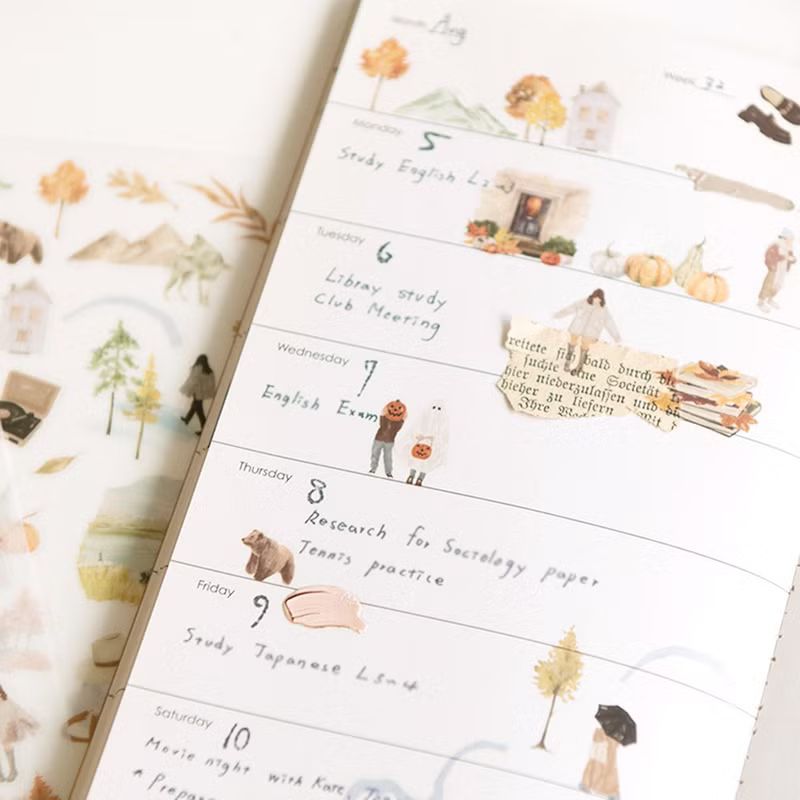 Month Aug
Week 32
Monday 5
Study English L2
Tuesday 6
Libray study
Club Meeting
reitete sich bald durch
suchte eine Societät
hier niederzulassen und
hieher zu liefern
Ihre
Wednesday 7
English Exam
Thursday 8
Research for Sociology paper
Tennis practice
Friday 9
Study Japanese L3~4
Saturday 10
Movie night with Kate,
* Prepare